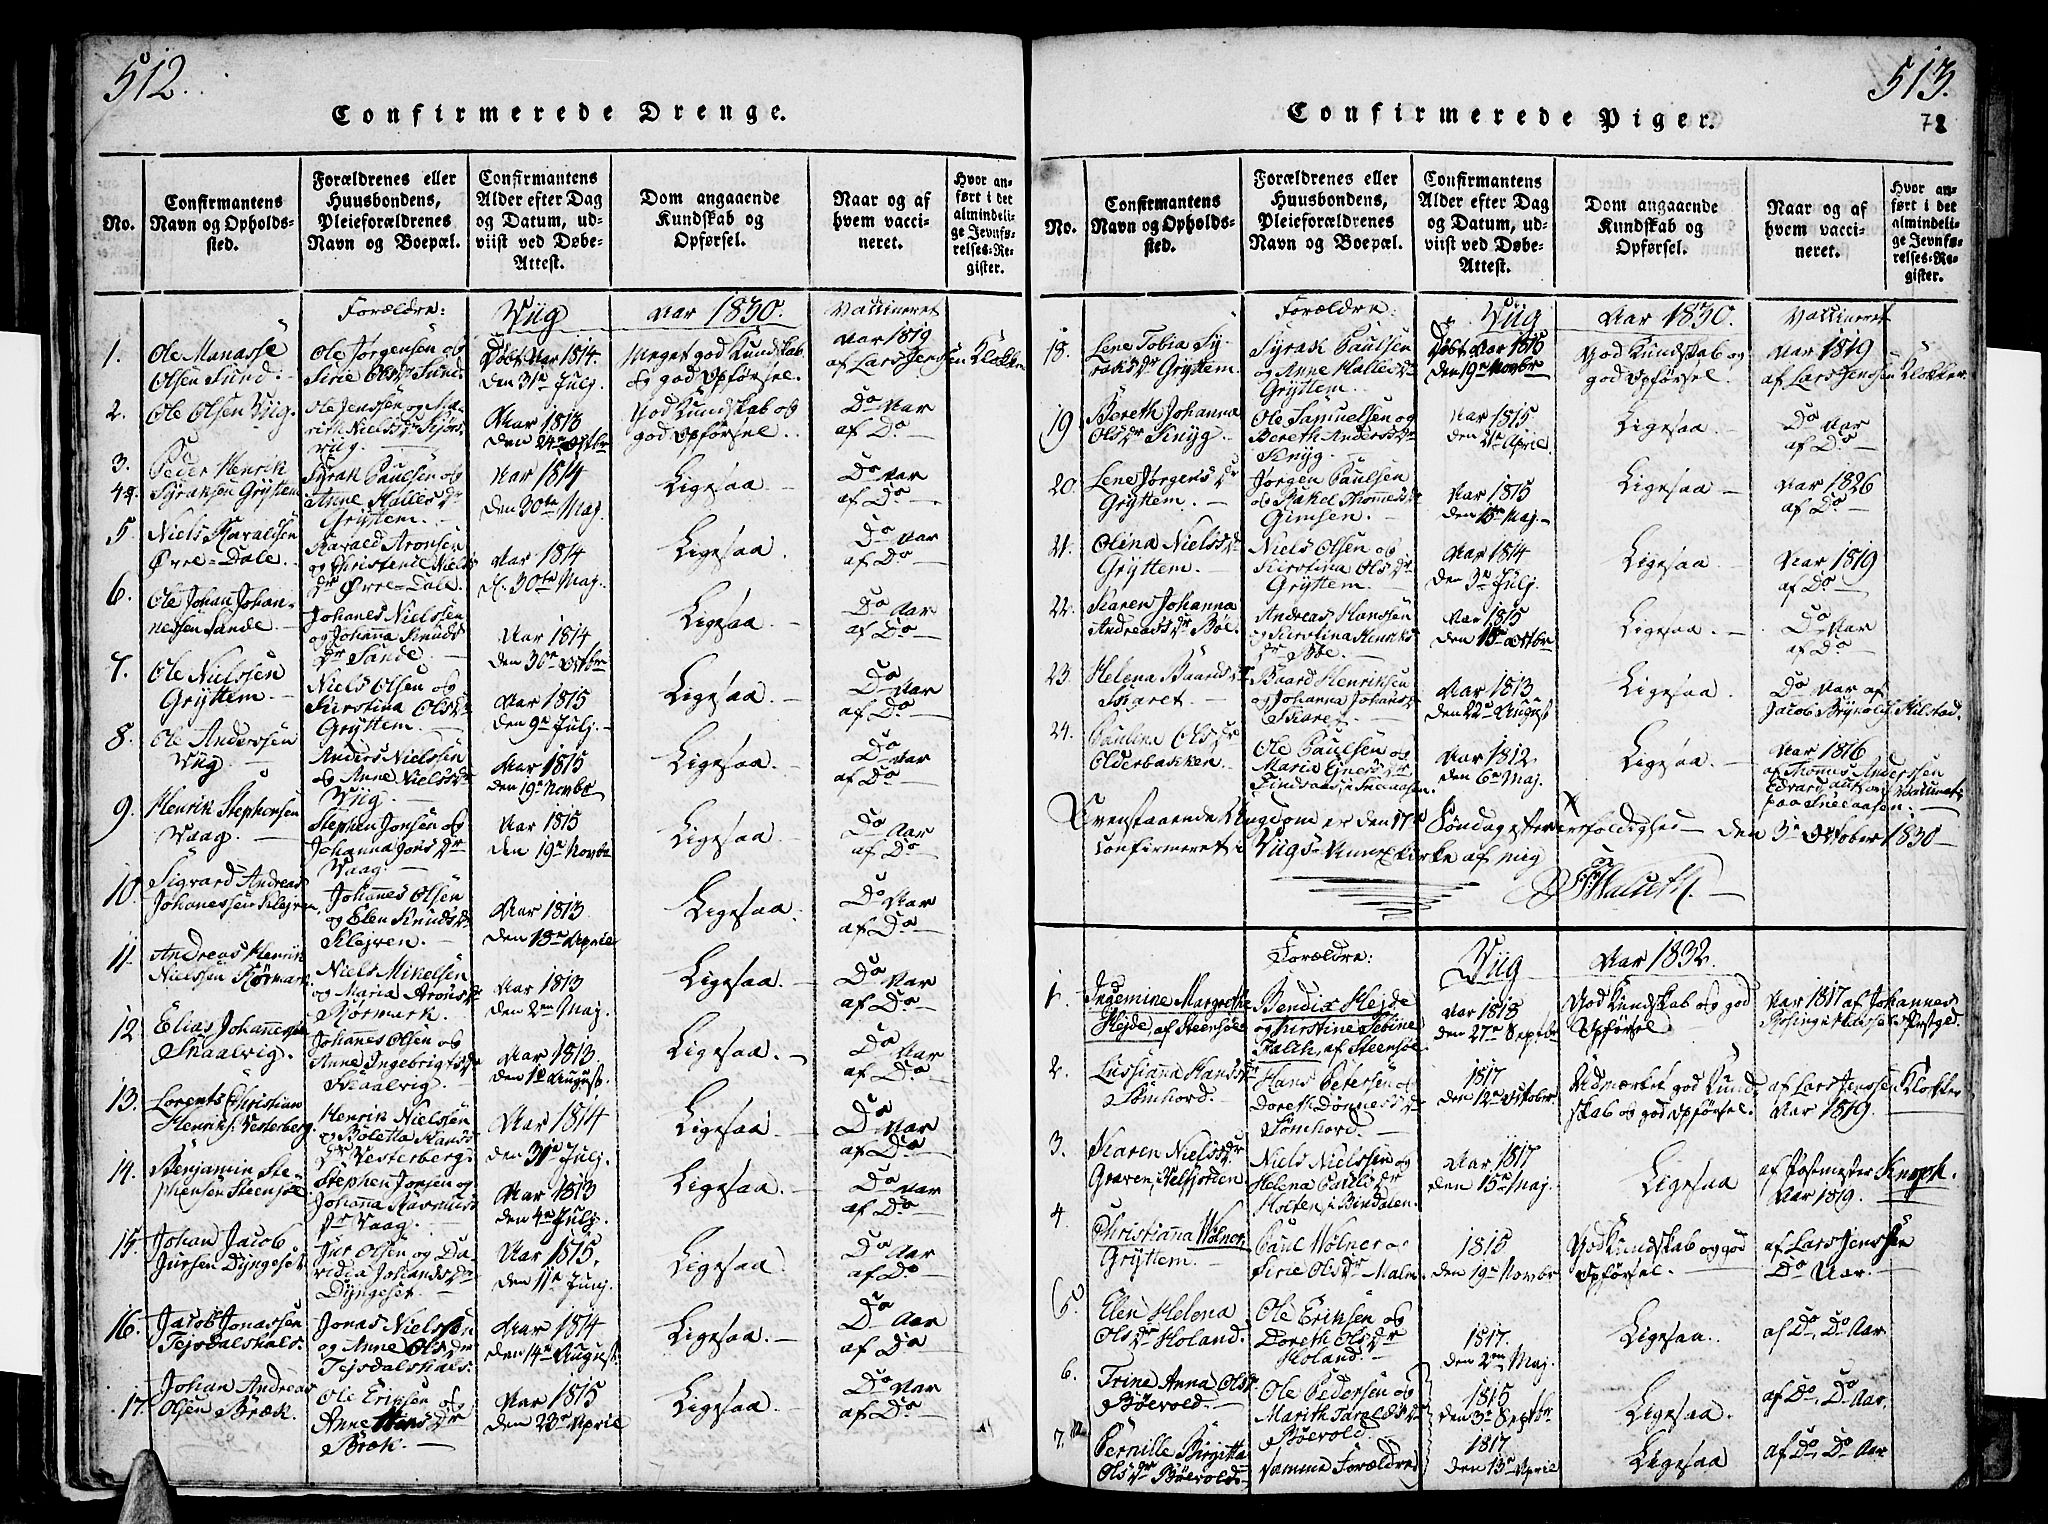 512.
Confirmerede Drenge.
No.
Confirmantens Navn og Opholdssted.
Forældrenes eller Huusbondens, Pleieforældrenes Navn og Boepæl.
Confirmantens Alder efter Dag og Datum, udviist ved Døbe-Attest.
Dom angaaende Kundskab og Opførsel.
Naar og af hvem vaccineret.
Hvor anført i det almindelige Jevnførelses-Register.
Forældre: Viig Aar 1830. Vaccineret
1. Ole Manasse Olsen Sund. Ole Jørgensen og Sirie Olsdr Sund. Døbt Aar 1814. den 31te Julj. Meget god Kundskab og god Opførsel. Aar 1819 af Lars Jenssen Klokker
2. Ole Olsen Viig. Ole Jenssen og Nielsdr Viig. Aar 1813 den 24de Octbr God Kundskab og god Opførsel. Do Aar af Do
3. 4. Peder Henrik Syraksen Gryttem Syrak Paulsen og Anne Hallesdr Gryttem. Aar 1814 den 30te Maj. Ligesaa Do Aar af Do
5. Niels Haraldsen Øvre-Dale. Harald Aronsen og Christense Nielsdr Øvre-Dale. Aar 1814 d. 30te Maj. Ligesaa. Do Aar af Do
6. Ole Johan Johannessen Sande. Johanes Nielssen og Johanna Knudsdr Sande. Aar 1814 den 30te Octbr Ligesaa. Do Aar af Do
7. Ole Nielssen Gryttem. Niels Olsen og Kirstina Olsdr Gryttem. Aar 1815 den 9de Julj. Ligesaa. Do Aar af Do
8. Ole Anderssen Viig. Anders Nielssen og Anne Nielsdr Viig. Aar 1815 den 19de Novbr Ligesaa. Do Aar af Do
9. Henrik Stephensen Vaag. Stephen Jonsen og Johanna Jonsdr Vaag. Aar 1815 den 19de Novbr Ligesaa. Do Aar af Do
10. Sigvard Andreas Johanessen Klejven. Johannes Olsen og Elen Knudsdr Klejven. Aar 1813 den 18de April Ligesaa. Do Aar af Do
11. Andreas Henrik Nielssen Kørmark. Niels Mikelsen og Maria Aronsdr Kørmark. Aar 1813 den 2den Maj. Ligesaa Do Aar af Do
12. Elias Johannessen Skaalvig. Johanes Olsen og Anne Ingebrigtsdr Skaalvig. Aar 1813. den 1e August. Ligesaa. Do Aar af Do
13. Lorents Christian Henriks. Vesterberg. Henrik Nielssen og Boletta Hansdr Vesterberg. Aar 1814 den 31te Julj. Ligesaa Do Aar af Do
14. Benjamin Stephensen Steensøe. Stephen Jonsen og Johanna Rasmusdr Vaag. Aar 1813 den 4de Julj. Ligesaa. Do Aar af Do
15. Johan Jacob Jursen Dyngeset. Jur Olsen og Johansdr Dyngeset. Aar 1815. den 11te Junj. Ligesaa. Do Aar af Do
16. Jacob Jonassen Tejsdalshals. Jonas Nielssen og Anne Olsdr Tejsdalshals. Aar 1814 den 14de August. Ligesaa. Do Aar af Do
17. Johan Andreas Olsen Bræk. Ole Eriksen og Anne dr Bræk. Aar 1815 den 23de April Ligesaa. Do Aar af Do
513.
78
Confirmerede Piger.
No.
Confirmantens Navn og Opholdssted.
Forældrenes eller Huusbondens, Pleieforældrenes Navn og Boepæl.
Confirmantens Alder efter Dag og Datum, udviist ved Døbe-Attest.
Dom angaaende Kundskab og Opførsel.
Naar og af hvem vaccineret.
Hvor anført i det almindelige Jevnførelses-Register.
Forældre: Viig Aar 1830. Vaccineret
18. Lene Tobia Syraksdr Gryttem. Syrak Paulsen og Anne Hallesdr Gryttem. Døbt Aar 1815 den 19de Novbr God Kundskab og god Opførsel. Aar 1819 af Lars Jenssen Klokker.
19. Bereth Johanna Olsdr Knyg. Ole Samuelsen og Bereth Andersdr Knyg. Aar 1815 den April. Ligesaa Do Aar af Do
20. Lene Jørgensdr Gryttem. Jørgen Paulsen og Rakel Thomesdr Gimsen. Aar 1815 den 15de Maj. Ligesaa Aar 1826 af Do
21. Olina Nielsdr Gryttem. Niels Olsen og Kirstina Olsdr Gryttem. Aar 1814 den 3de Julj. Ligesaa Aar 1819 af Do
22. Karen Johanna Andreasdr Bøe. Andreas Hanssen og Kirstina Henriksdr Bøe. Aar 1815 den 15de Octbr Ligesaa. Do Aar af Do
23. Helena Baardsdr Skaret. Baard Henriksen og Johanna Johansdr Skaret. Aar 1813 den 22de August Ligesaa. Do Aar af Jacob Brynolds. Hilstad.
24. Paulina Olsdr Olderbakken. Ole Paulsen og Maria Ejnersdr Findsaas, i Sneaasen. Aar 1812 den 6te Maj. Ligesaa Aar 1816 af Thomas Anderssen paa Sneaasen.
Ovenstaaende Ungdom er den 17de Søndag efter Trefoldighed den 3de October 1830
confirmeret i Viigs-Annexkirke af mig
Forældre: Viig Aar 1832.
1. Ingemine Margrethe Hejde af Steensøe Bendix Hejde og Kirstine Sebine Falch, af Steensøe. Aar 1818 den 27de Septbr God Kundskab og god Opførsel. Aar 1817 af Johannes
2. Lussianna Hansdr Sømhord. Hans Petersen og Doreth Dønnesdr Sømhord. 1817 den 12te October Udmærket god Kundskab og god Opførsel. af Lars Jenssen Klokker Aar 1819.
3. Karen Nielsdr Graven, i Velfjorden Niels Nielssen og Helena Paulsdr Holten, i Bindalen. Aar 1817 den 15de Maj. Ligesaa af Postmester Knoph. Aar 1819.
4 Christianna Wølner, Gryttem. Paul Wølner og Sirie Olsdr Malm. 1815 den 19de Novbr God Kundskab og god Opførsel. af Lars Jenssen Do Aar.
5. Elen Helena Olsdr Holand. Ole Eriksen og Doreth Olsdr Holand. 1817. den 2den Maj. Ligesaa. af Do, Do Aar.
6. Trine Anna Olsdr Bøevold. Ole Pedersen og Marith Taraldsdr Bøevold. 1815 den 3de Septbr Ligesaa. af Do, Do Aar.
7. Pernille Birgitta Olsdr Bøevold. Samme Forældre 1817 den 13de April Ligesaa af Do Do Aar